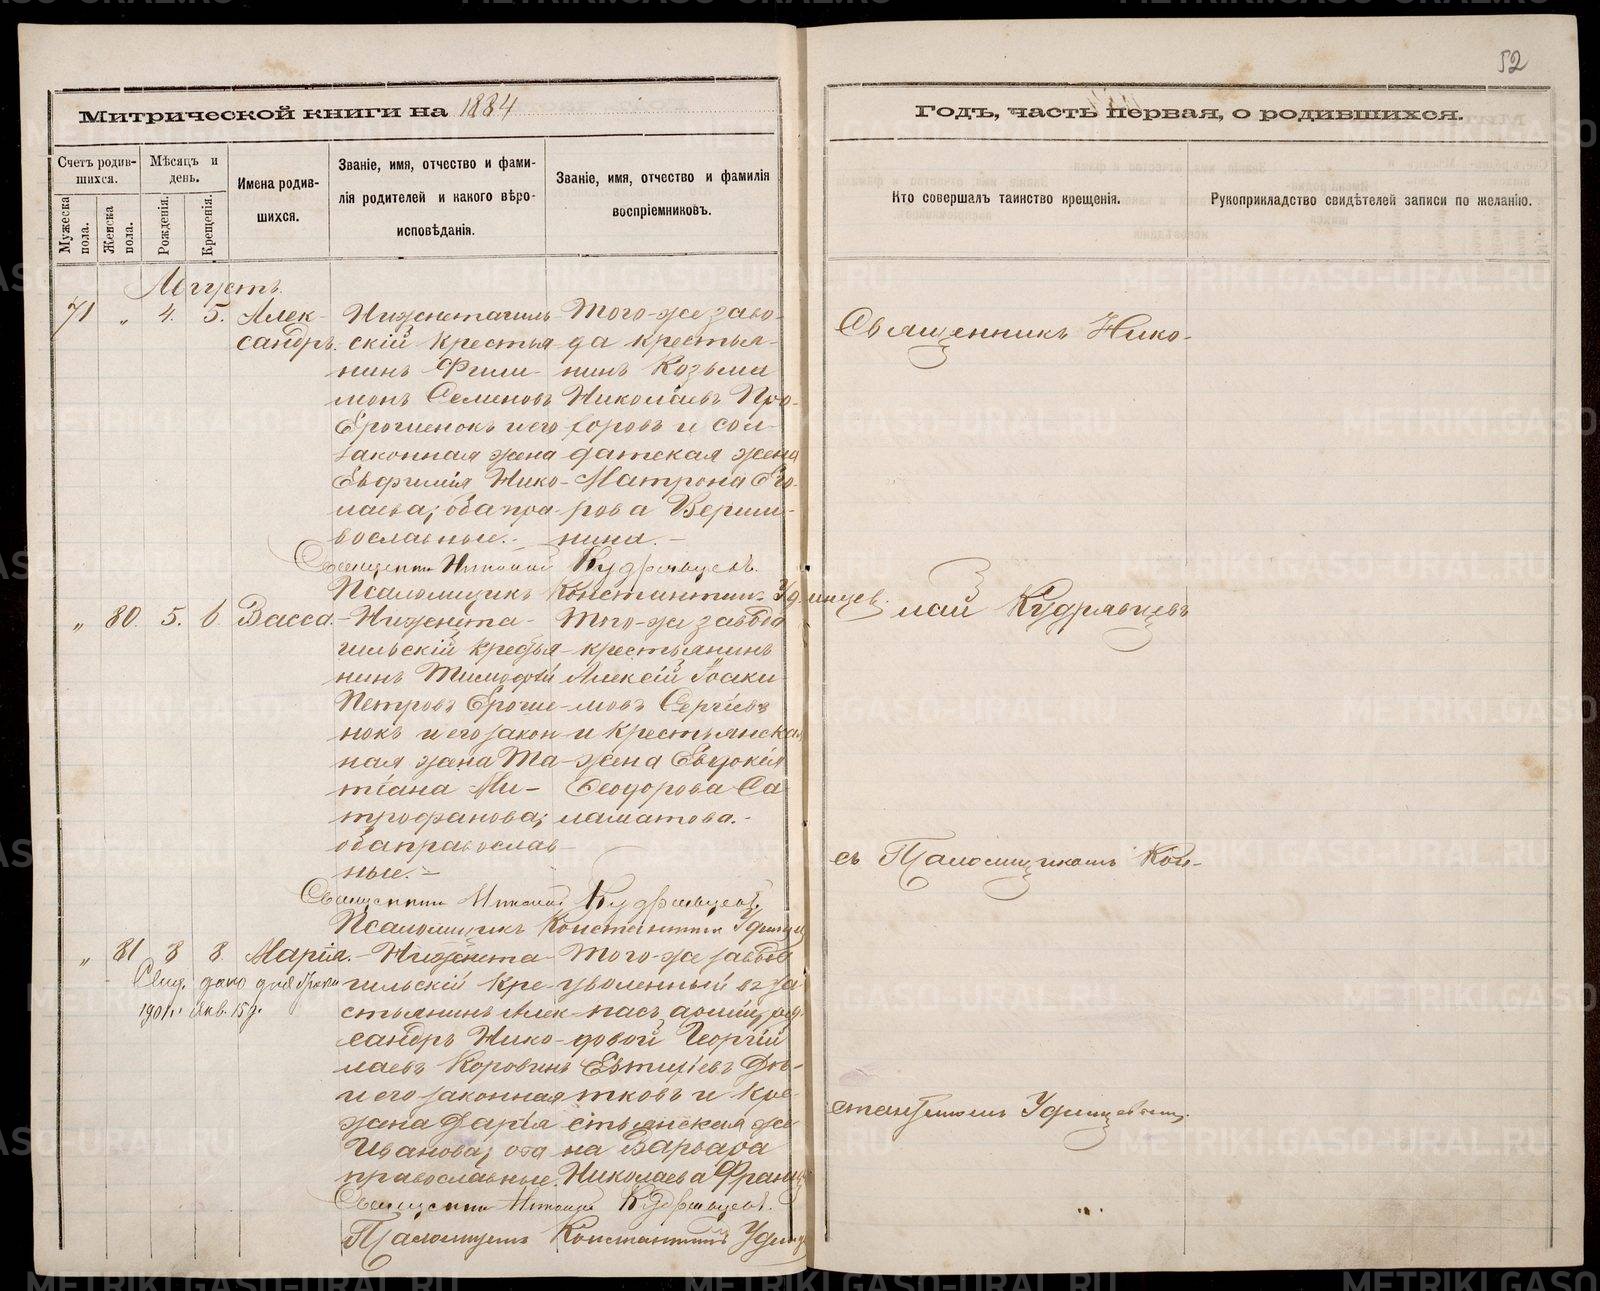 52
Митрической книги на 1884
Годъ, часть первая, о родившихся.
Счетъ родив-
шихся.
Мужеска пола.
Женска пола.
Мѣсяцъ и
день.
Рожденія.
Крещенія.
Имена родив-
шихся.
Званіе, имя, отчество и фами-
лія родителей и какого вѣро-
исповѣданія.
Званіе, имя, отчество и фамилія
воспріемниковъ.
Кто совершалъ таинство крещенія.
Рукоприкладство свидѣтелей записи по желанію.
Августъ.
71 „ 4. 5. Алек-
сандръ.
Нижнетагиль-
скій крестья
нинъ Фили-
монъ Семеновъ
Ерошенокъ и его
законная жена
Евфимія Нико-
лаева; оба пра-
вославные.-
Того-же заво-
да крестья-
нинъ Козьма
Николаевъ Про-
хоровъ и сол-
датская жена
Матрона Его-
рова Верши-
нина.-
Священникъ Николай Кудрявцевъ.
Псаломщикъ Константинъ Удинцев.
„ 80 5. 6 Васса.
Нижнета-
гильскій крестья
нинъ Тимофѣй
Петровъ Ероше-
нокъ и его закон
ная жена Та-
тіана Ми-
трофанова;
оба православ-
ные.-
Того-же завода
крестьянинъ
Алексій Іоаки
мовъ Сергіевъ
и крестьянская
жена Евдокія
Феодорова Са
ламатова.-
Священникъ Николай Кудрявцевъ.
Псаломщикъ Константинъ Удинц
„ 81 8 8 Марія.
дано для брака
1901г. Янв. 15 д.
Нижнета-
гильскій кре-
стьянинъ Алек-
сандръ Нико-
лаевъ Коровинъ
и его законная
жена Дарія
Иванова; оба
православные.
Того-же завода
уволенный въ за
пасъ арміи, ря-
довой Георгій
Евтихіевъ Дол-
тковъ и кре-
стьянская же
на Варвара
Николаева
Священникъ Николай Кудрявцевъ.
Псаломщикъ Константинъ Удинц
Священникъ Нико-
лай Кудрявцевъ
съ Псаломщикомъ Кон-
стантиномъ Удинцевымъ.
METRIKI.GASO-URAL.RU